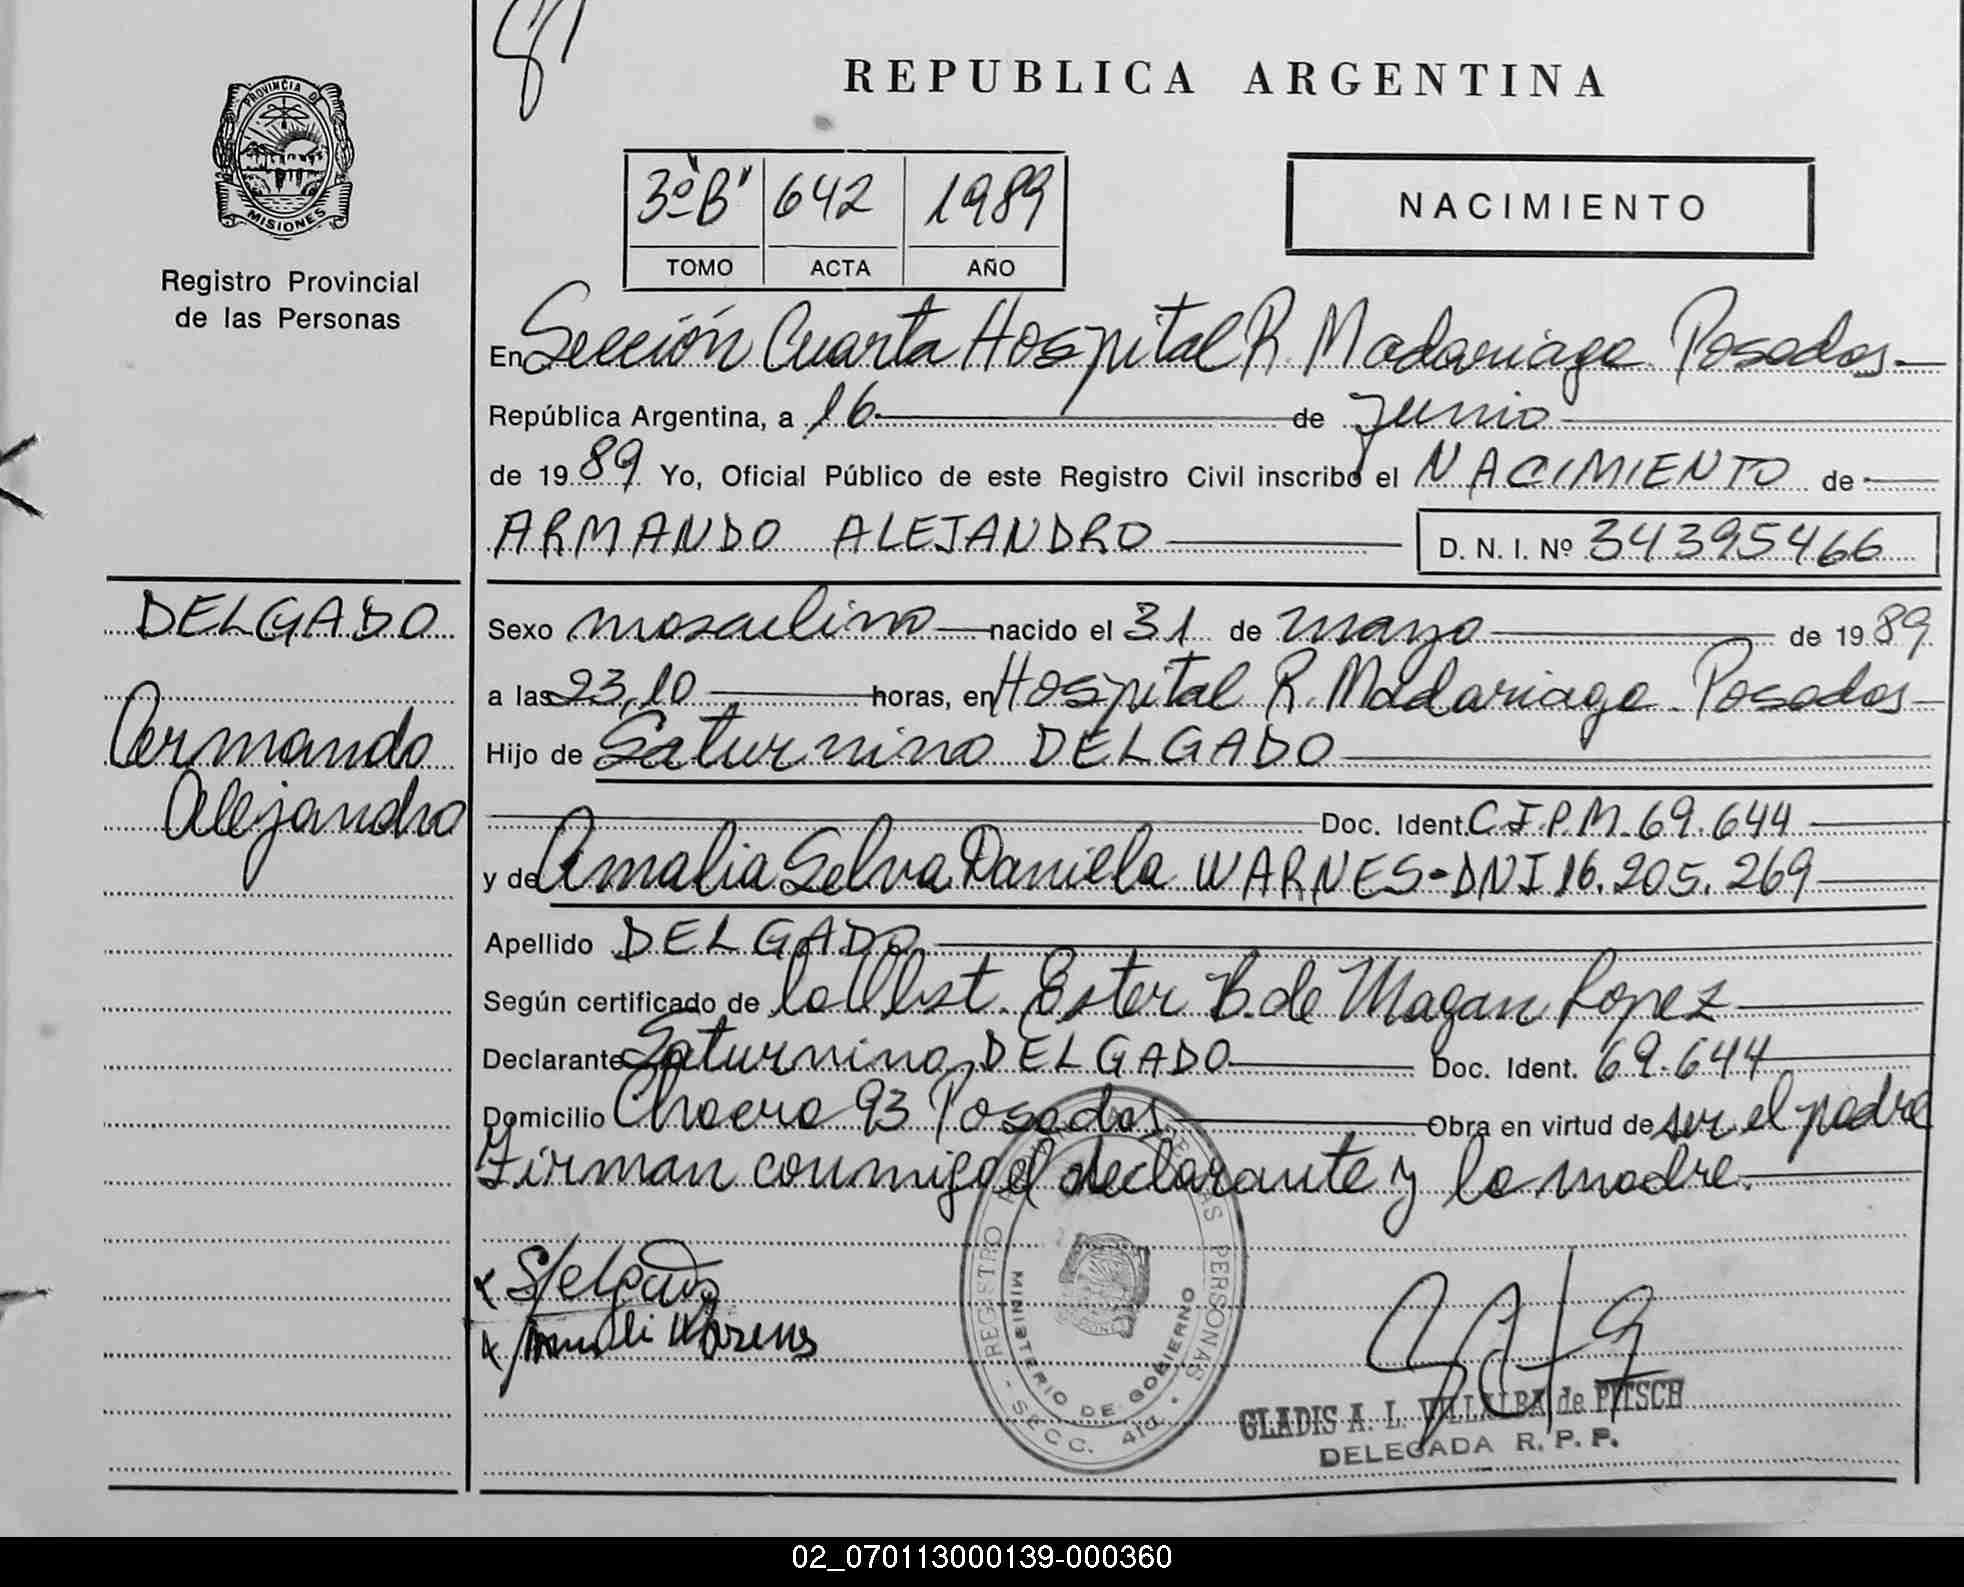 REPUBLICA ARGENTINA
PROVINCIA DE
MISIONES
Registro Provincial
de las Personas
3º "B" 642 1989
TOMO ACTA AÑO
NACIMIENTO
En Sección Cuarta Hospital R. Madariaga Posadas
República Argentina, a 16 de junio
de 1989 Yo, Oficial Público de este Registro Civil inscribo el NACIMIENTO de
ARMANDO ALEJANDRO D. N. I. Nº 34395466
DELGADO
Armando
Alejandro
Sexo masculino nacido el 31 de mayo de 1989
a las 23,10 horas, en Hospital R. Madariaga Posadas
Hijo de Saturnino DELGADO
Doc. Ident. C.I.P.M. 69.644
y de Amalia Selva Daniela WARNES-DNI 16.205.269
Apellido DELGADO
Según certificado de la Obst. Ester B. de Magan Lopez
Declarante Saturnino DELGADO Doc. Ident. 69.644
Domicilio Chacra 93 Posadas Obra en virtud de ser el padre
Firman conmigo el declarante y la madre.
REGISTRO PERSONAS
MINISTERIO DE GOBIERNO
SECC. 4ta.
GLADIS A. L. VILLALBA de PITSCH
DELEGADA R. P. P.
02_070113000139-000360